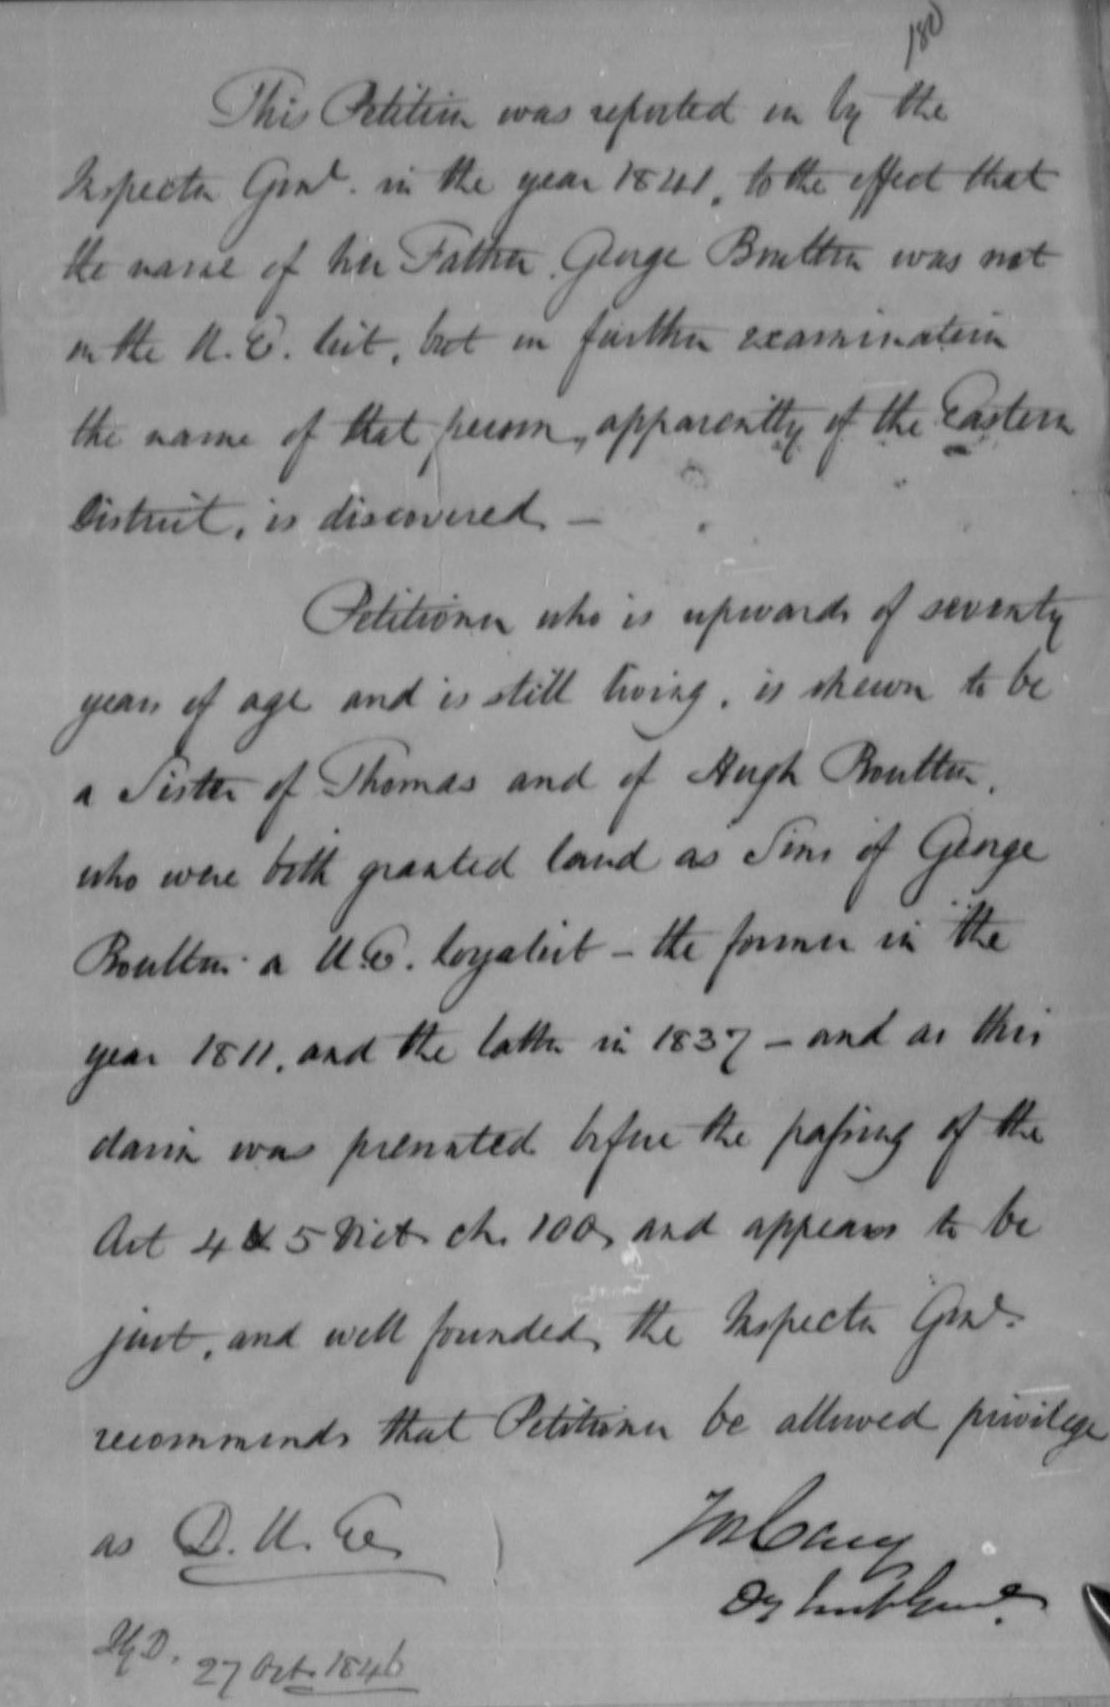 180
This Petition was reported on by the
Inspector Genl. in the year 1841, to the effect that
the name of her Father George Boulton was not
on the U.E. list, but on further examination
the name of that person, apparently of the Eastern
District, is discovered —
Petitioner who is upwards of seventy
years of age and is still living, is shewn to be
a Sister of Thomas and of Hugh Boulton,
who were both granted land as Sons of George
Boulton a U.E. Loyalist – the former in the
year 1811, and the latter in 1837 – and as this
claim was presented before the passing of the
Act 4 & 5 Vict. ch. 100, and appears to be
just, and well founded, the Inspector Genl.
recommends that Petitioner be allowed privilege
as D. U. E.
Cary
27 Oct. 1846